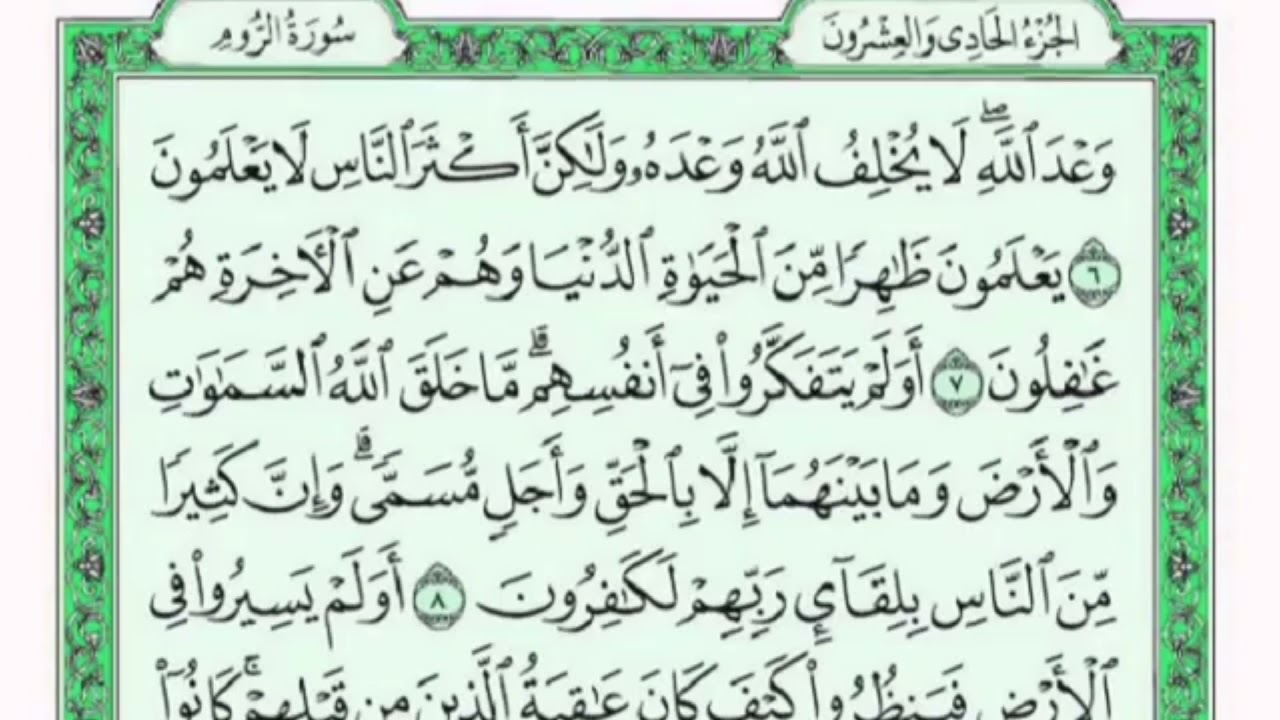 الجُزْءُ الحَادِي وَالعِشْرُونَ
سُورَةُ الرُّومِ
وَعْدَ ٱللَّهِۖ لَا يُخْلِفُ ٱللَّهُ وَعْدَهُۥ وَلَٰكِنَّ أَكْثَرَ ٱلنَّاسِ لَا يَعْلَمُونَ
٦ يَعْلَمُونَ ظَٰهِرًا مِّنَ ٱلْحَيَوٰةِ ٱلدُّنْيَا وَهُمْ عَنِ ٱلْأَخِرَةِ هُمْ
غَٰفِلُونَ ٧ أَوَلَمْ يَتَفَكَّرُوا۟ فِىٓ أَنفُسِهِمۗ مَّا خَلَقَ ٱللَّهُ ٱلسَّمَٰوَٰتِ
وَٱلْأَرْضَ وَمَا بَيْنَهُمَآ إِلَّا بِٱلْحَقِّ وَأَجَلٍ مُّسَمًّىۗ وَإِنَّ كَثِيرًا
مِّنَ ٱلنَّاسِ بِلِقَآئِ رَبِّهِمْ لَكَٰفِرُونَ ٨ أَوَلَمْ يَسِيرُوا۟ فِى
ٱلْأَرْضِ فَيَنظُرُوا۟ كَيْفَ كَانَ عَٰقِبَةُ ٱلَّذِينَ مِن قَبْلِهِمْۚ كَانُوٓا۟